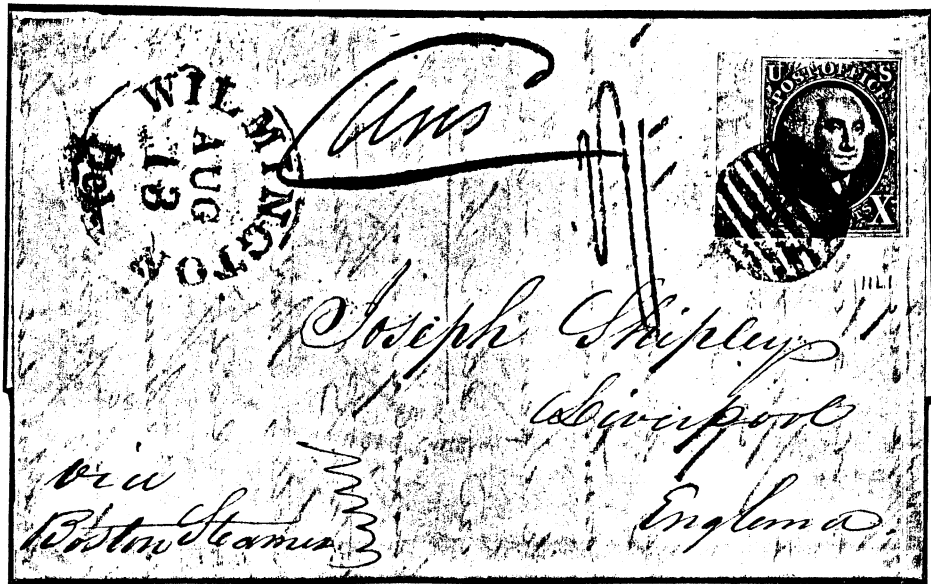 WILMINGTON
Del
AUG
13
U S
POST OFFICE
X
Joseph Shipley
Liverpool
England
via
Boston Steamer